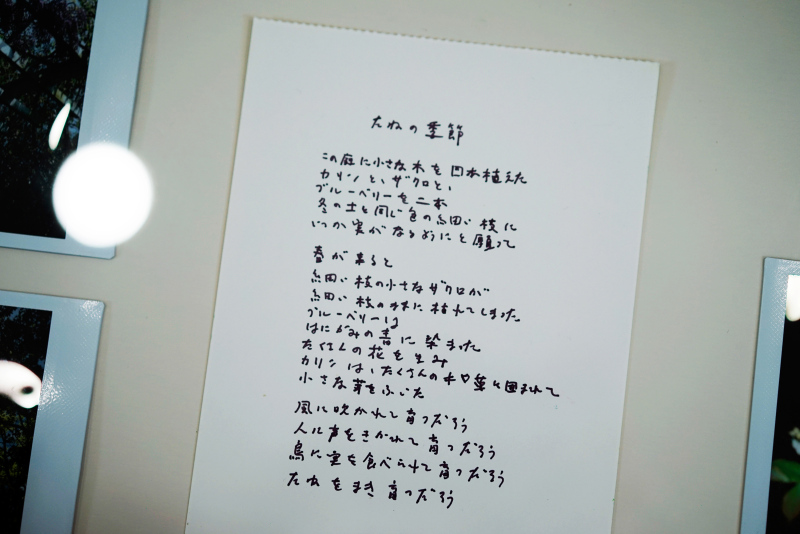 たねの季節
この庭に小さな木を四本植えた
カリンと、ザクロと、
ブルーベリーを二本
冬の土と同じ色の細い枝に
いつか実がなるようにと願って
春が来ると
細い枝の小さなザクロが
細い枝のまま枯れてしまった
ブルーベリーは
はにかみの青に染まった
たくさんの花を生み
カリンは、たくさんの木口葉に囲まれて
小さな芽をふいた
風に吹かれて育つだろう
人に声をきかれて育つだろう
鳥に実を食べられて育つだろう
たねをまき育つだろう